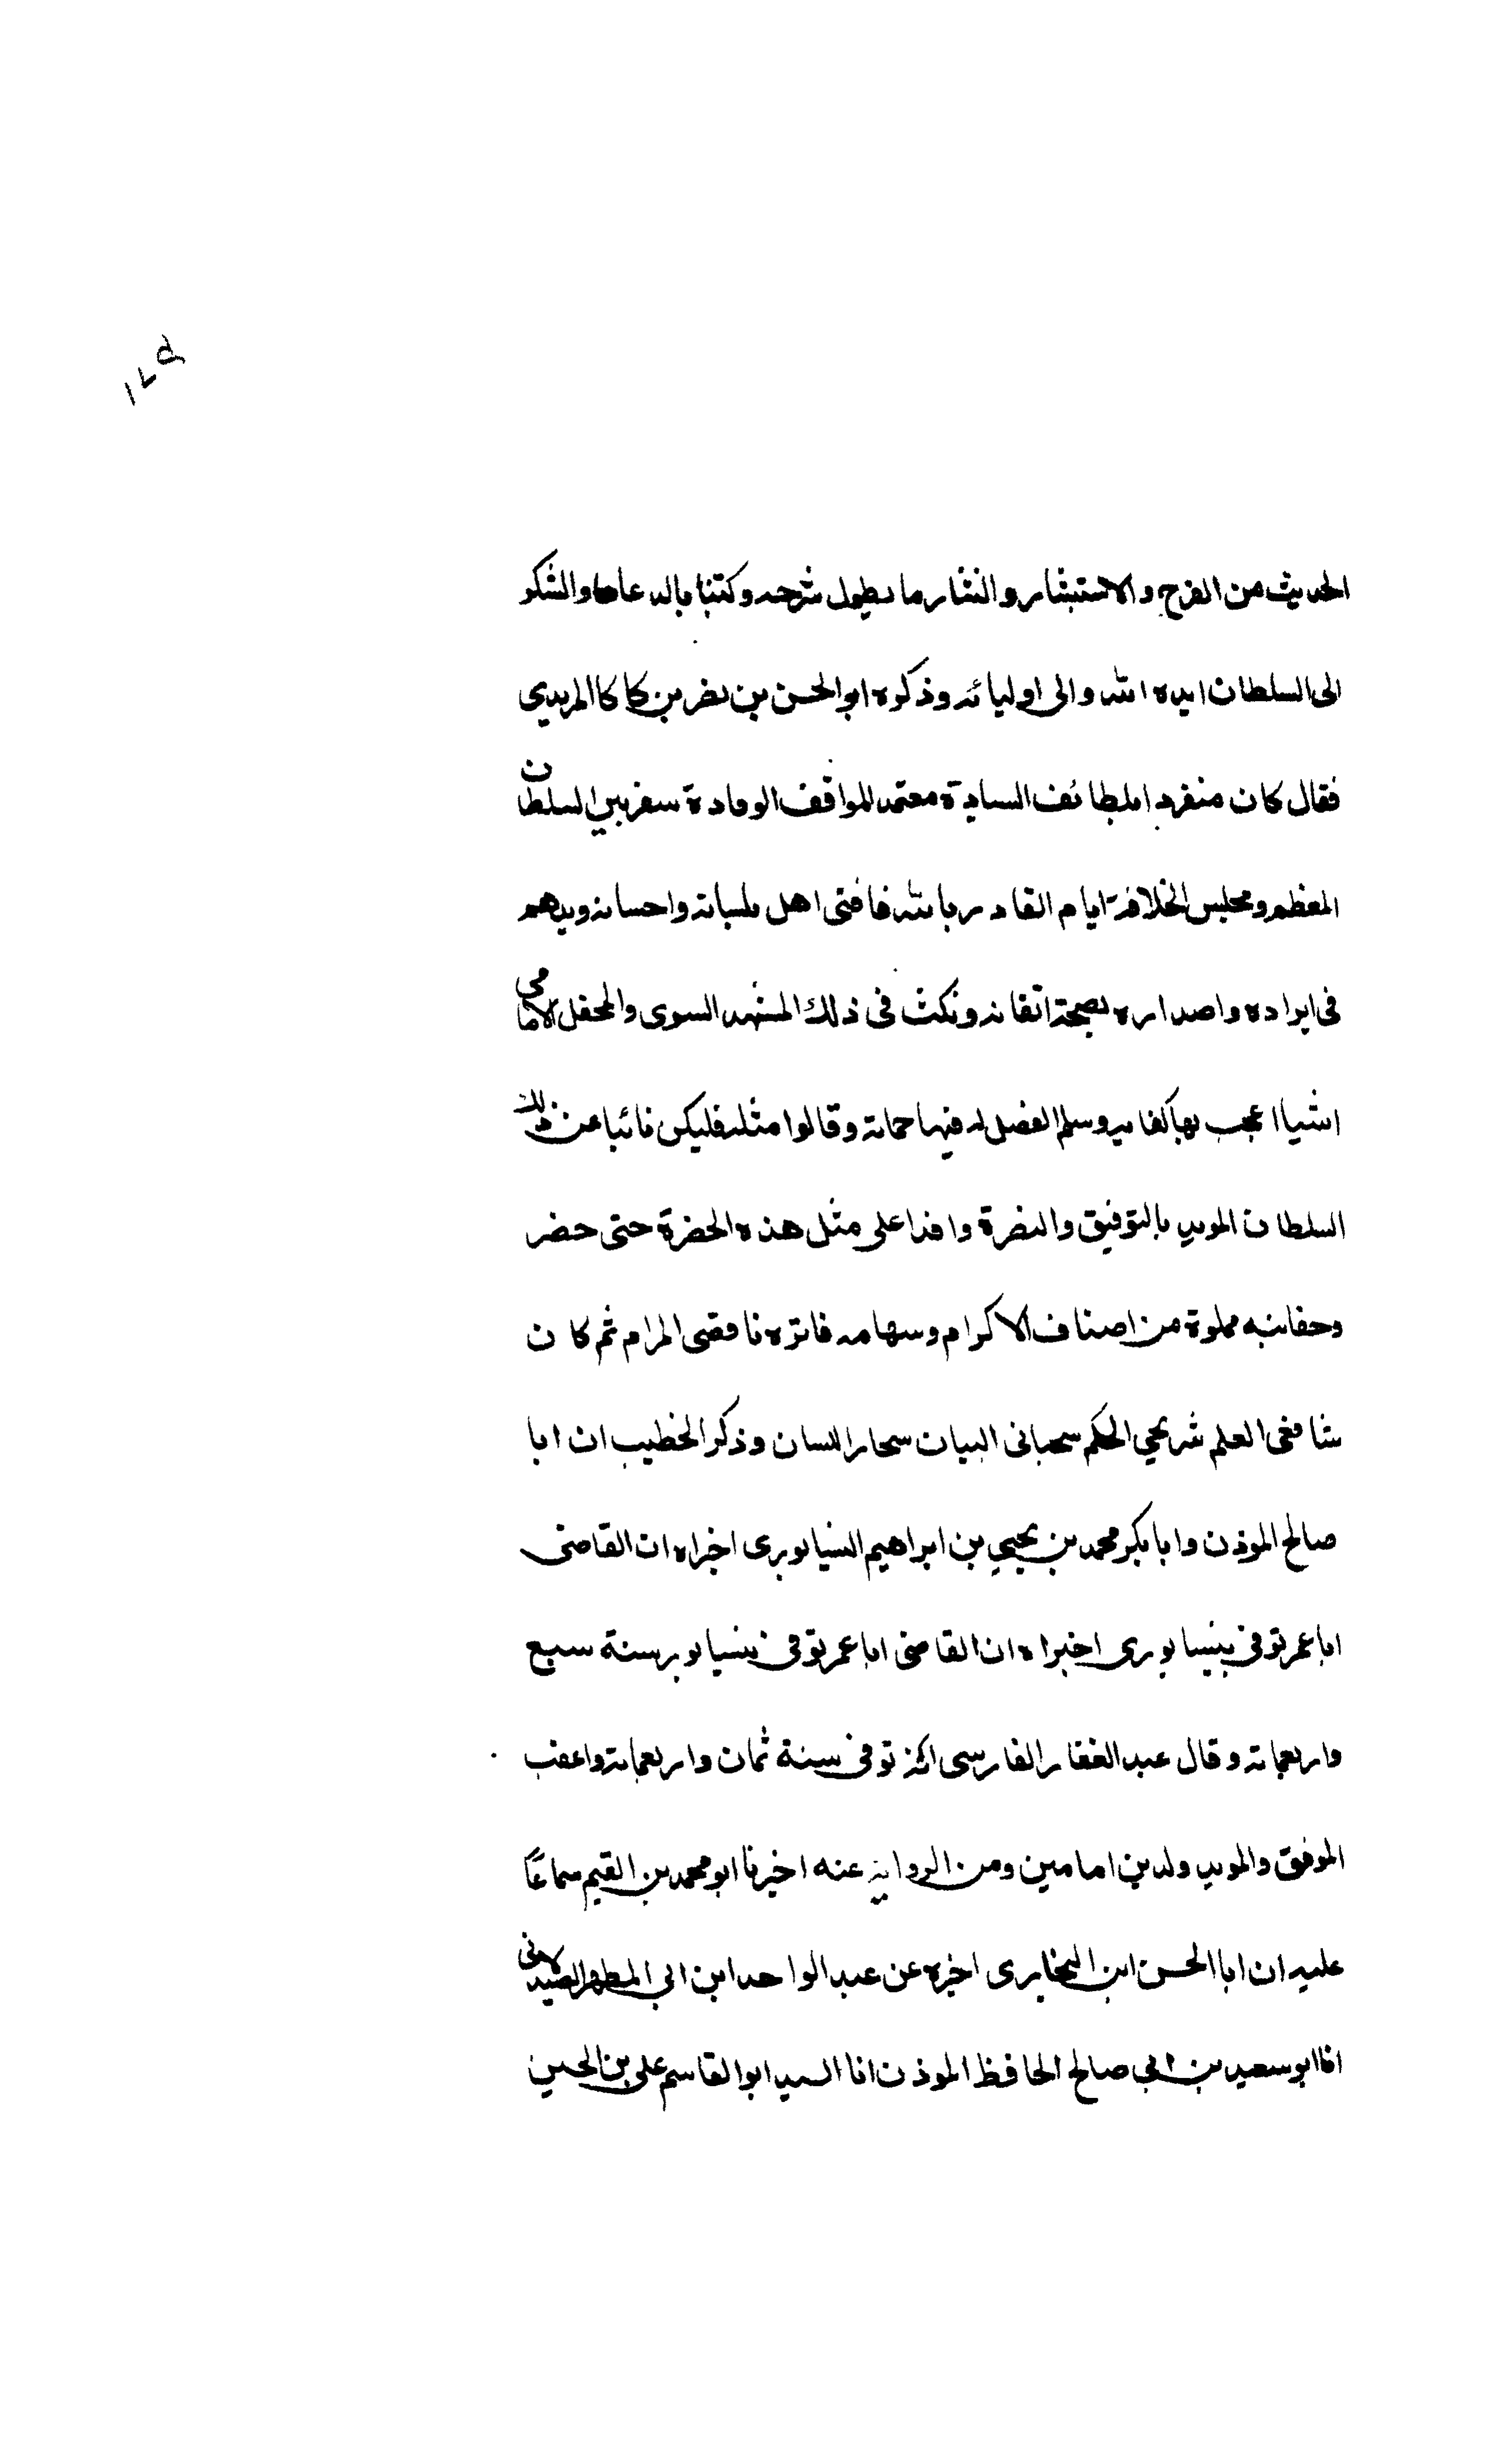 ١٧٩
الحديث من الفرح والاستبشار والنثار ما يطول شرحه وكتبنا بالدعا والشكر
الى السلطان ايده الله والى اوليائه وذكره ابو الحسن بن نصر بن كاكا المريدي
فقال كان منفردا بلطائف السيادة معتمد المواقف الوفادة سفر بين السلطان
المعظم ومجلس الخلافة ايام القادر بالله فافتى اهل بلسانه واحسانه وبدهم
فى ايراده واصداره بصحة اتقانه ونكث فى ذلك المشهد السوى والمحفل الامامى
اشياا عجب بها كفايه وسلم الفضل له فيها حماته وقالوا مثله فليكن نائبا عن ذلك
السلطان المويد بالتوفيق والنصرة وافدا على مثل هذه الحضرة حتى حضر
وحقائبه مملوة من اصناف الاكرام وسهامه فائزه نا قصى المرام ثم كان
شافعى العلم شريحي الحكم سحبانى البيان سحار اللسان وذكر الخطيب ان ابا
صالح الموذن وابا بكر محمد بن يحيي بن ابراهيم النيسابورى اخبراه ان القاضى
ابا عمر توفى بنيسابورى اخبراه ان القاضى ابا عمر توفى بنيسابور سنة سبع
واربعماية وقال عبد الغفار الفارسى انه توفى سنة ثمان واربعماية واعقب
الموفق والمويد ولدين امامين ومن الرواية عنه اخبرنا ابو محمد بن القيم سماعًا
عليه ان ابا الحسن ابن البخارى اخبره عن عبد الواحد ابن ابي المطهر الصيدلانى
انا ابو سعيد بن ابي صالح الحافظ الموذن انا السيد ابو القاسم على بن الحسين